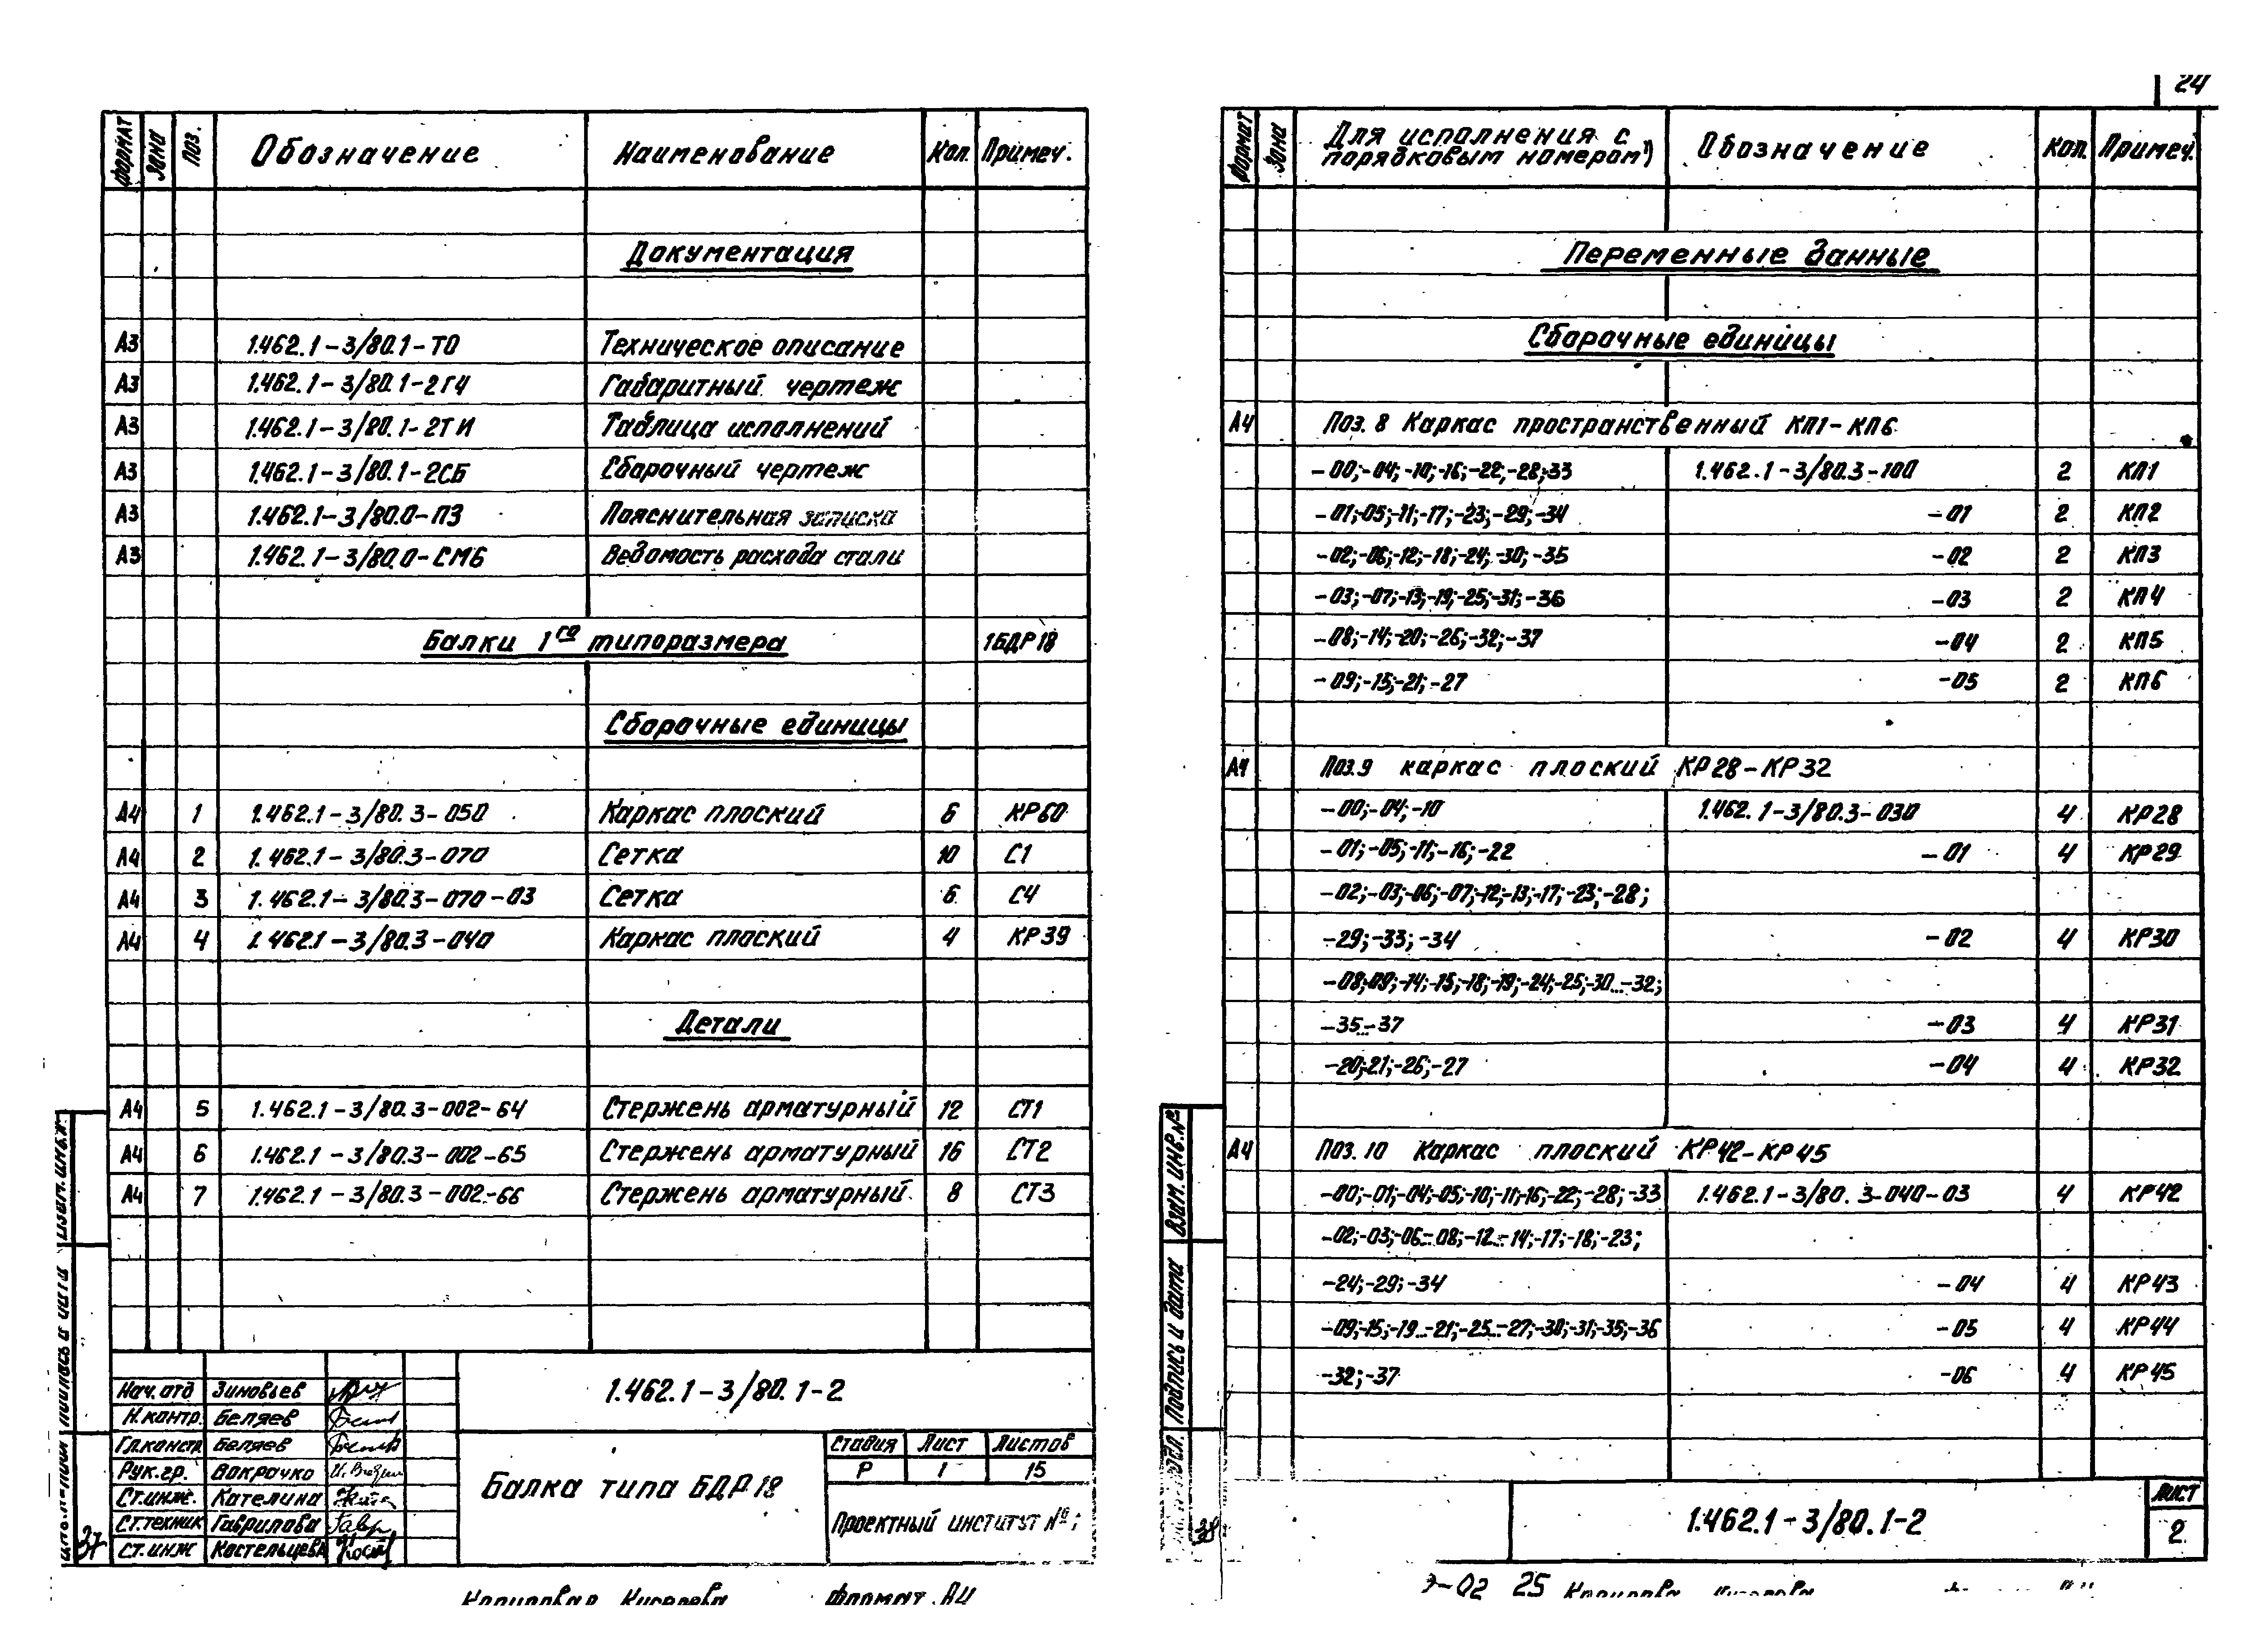 24
Формат Зона Поз. Обозначение Наименование Кол. Примеч.
Документация
А3 1.462.1-3/80.1-ТО Техническое описание
А3 1.462.1-3/80.1-2ГЧ Габаритный чертеж
А3 1.462.1-3/80.1-2ТИ Таблица исполнений
А3 1.462.1-3/80.1-2СБ Сборочный чертеж
А3 1.462.1-3/80.0-ПЗ Пояснительная записка
А3 1.462.1-3/80.0-СМБ Ведомость расхода стали
Балки 1го типоразмера 1БДР18
Сборочные единицы
А4 1 1.462.1-3/80.3-050 Каркас плоский 6 КР60
А4 2 1.462.1-3/80.3-070 Сетка 10 С1
А4 3 1.462.1-3/80.3-070-03 Сетка 6 С4
А4 4 1.462.1-3/80.3-040 Каркас плоский 4 КР39
Детали
А4 5 1.462.1-3/80.3-002-64 Стержень арматурный 12 СТ1
А4 6 1.462.1-3/80.3-002-65 Стержень арматурный 16 СТ2
А4 7 1.462.1-3/80.3-002-66 Стержень арматурный 8 СТ3
Нач. отд Зиновьев
Н.контр. Беляев
Гл.констр. Беляев
Рук.гр. Вокрочко
Ст.инж. Кателина
Ст.техник Гаврилова
Ст.инж Костельцева
1.462.1-3/80.1-2
Балка типа БДР18
Стадия Лист Листов
Р 1 15
Проектный институт №
37
Формат А4
Формат Зона Для исполнения с порядковым номером 1) Обозначение Кол. Примеч.
Переменные данные
Сборочные единицы
А4 Поз. 8 Каркас пространственный КП1-КП6
-00;-04;-10;-16;-22;-28;-33 1.462.1-3/80.3-100 2 КП1
-01;-05;-11;-17;-23;-29;-34 -01 2 КП2
-02;-06;-12;-18;-24;-30;-35 -02 2 КП3
-03;-07;-13;-19;-25;-31;-36 -03 2 КП4
-08;-14;-20;-26;-32;-37 -04 2 КП5
-09;-15;-21;-27 -05 2 КП6
А4 Поз.9 каркас плоский КР28-КР32
-00;-04;-10 1.462.1-3/80.3-030 4 КР28
-01;-05;-11;-16;-22 -01 4 КР29
-02;-03;-06;-07;-12;-13;-17;-23;-28;
-29;-33;-34 -02 4 КР30
-08;-09;-14;-15;-18;-19;-24;-25;-30...-32;
-35...-37 -03 4 КР31
-20;-21;-26;-27 -04 4 КР32
А4 Поз. 10 Каркас плоский КР42-КР45
-00;-01;-04;-05;-10;-11;-16;-22;-28;-33 1.462.1-3/80.3-040-03 4 КР42
-02;-03;-06...-08;-12...-14;-17;-18;-23;
-24;-29;-34 -04 4 КР43
-09;-15;-19...-21;-25...-27;-30;-31;-35;-36 -05 4 КР44
-32;-37 -06 4 КР45
Взам.инв.№
Подпись и дата
38
1.462.1-3/80.1-2
Лист
2
-02 25